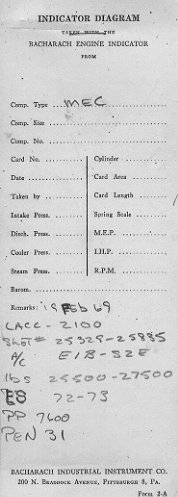 INDICATOR DIAGRAM
TAKEN WITH THE
BACHARACH ENGINE INDICATOR
FROM
Comp. Type MEC
Comp. Size
Comp. No.
Card No. Cylinder
Date Card Area
Taken by Card Length
Intake Press. Spring Scale
Disch. Press. M.E.P.
Cooler Press. I.H.P.
Steam Press. R.P.M.
Barom.
Remarks: 19 FEB 69
CACC - 2100
SHOT# 25329-25885
A/C E1B-S2E
lbs 25500-27500
ES 72-73
PP 7600
PEN 31
BACHARACH INDUSTRIAL INSTRUMENT CO.
200 N. BRADDOCK AVENUE, PITTSBURGH 8, PA.
Form 2-A